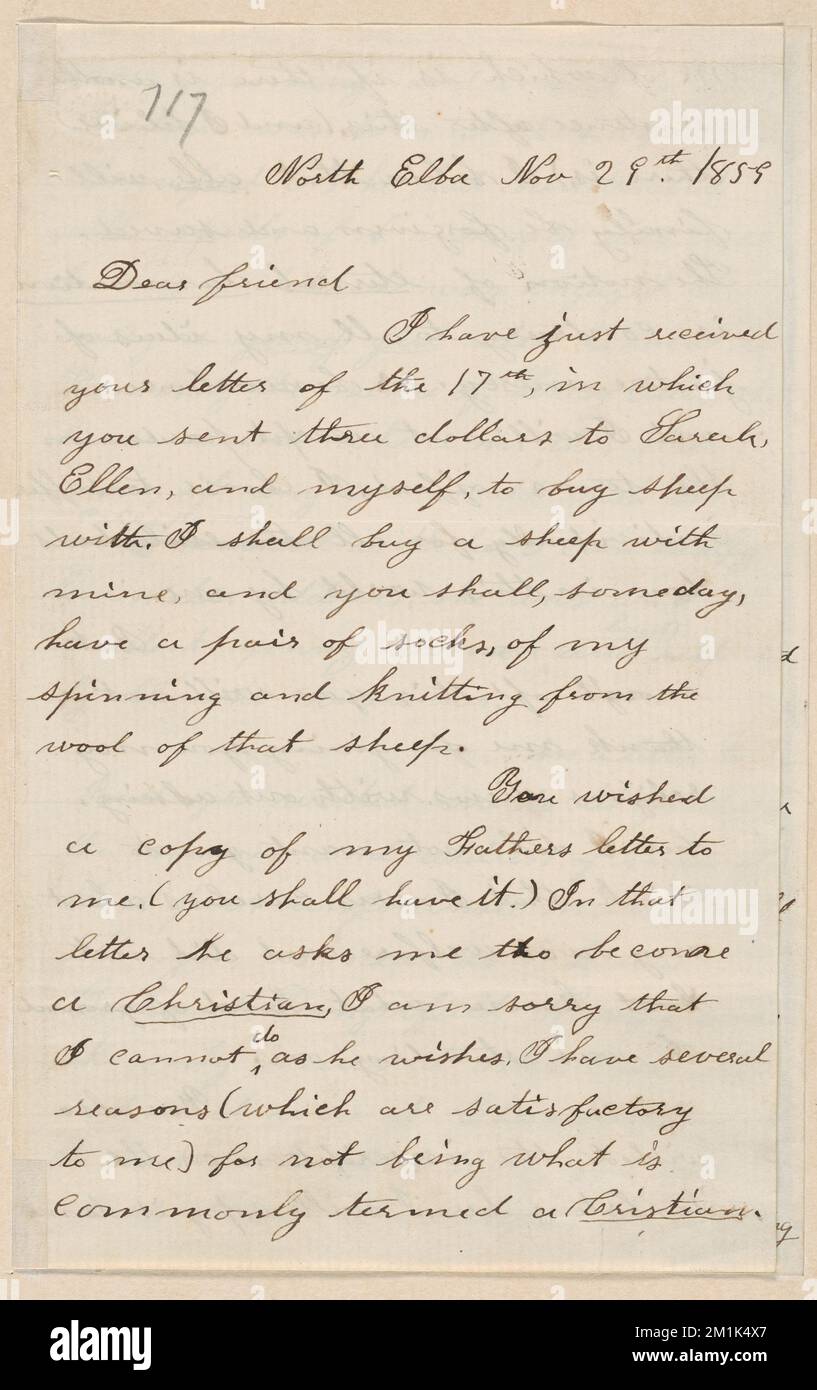 117
North Elba Nov 29th. 1859
Dear friend
I have just received
your letter of the 17th, in which
you sent three dollars to Sarah,
Ellen, and myself, to buy sheep
with. I shall buy a sheep with
mine, and you shall, someday,
have a pair of socks, of my
spinning and knitting from the
wool of that sheep.
You wished
a copy of my Fathers letter to
me. (you shall have it.) In that
letter he asks me to become
a Christian, I am sorry that
I cannot do as he wishes. I have several
reasons (which are satisfactory
to me) for not being what is
commonly termed a Cristian.
alamy
Image ID: 2M1K4X7
www.alamy.com